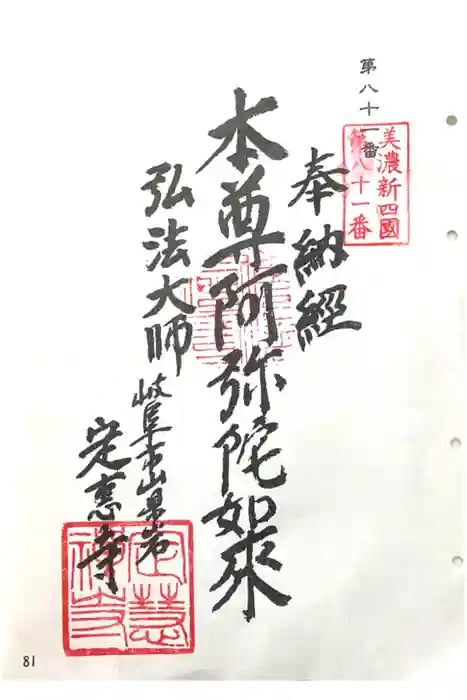 第八十一番
美濃新四國
第八十一番
奉納經
本尊阿弥陀如來
弘法大師
岐阜市山県岩
定惠寺
定慧禅寺
81